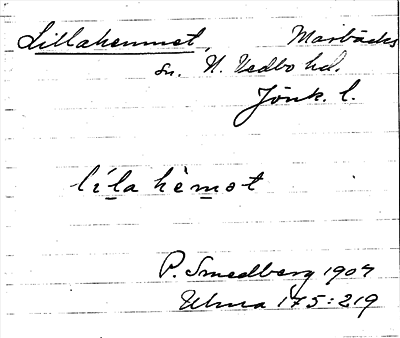 Lillahemmet, Marbäcks
sn. N. Vedbo hd.
Jönk. l.
lí̱la hèm̱ət
P. Smedberg 1907
Ulma 175:219